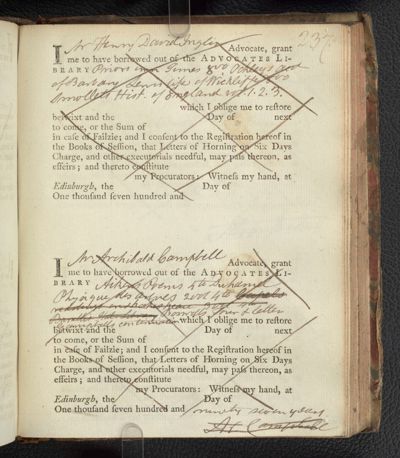 237
I Mr Henry David Inglis Advocate, grant
me to have borrowed out of the ADVOCATES LI-
BRARY
of Barbary Lewis's life of Wickliffe 8vo
Smolletts Hist. of England vol. 1. 2. 3.
which I oblige me to restore
betwixt and the Day of next
to come, or the Sum of
in case of Failzie; and I consent to the Registration hereof in
the Books of Session, that Letters of Horning on Six Days
Charge, and other executorials needful, may pass thereon, as
effeirs; and thereto constitute
my Procurators: Witness my hand, at
Edinburgh, the Day of
One thousand seven hundred and
I Mr Archibald Campbell Advocate, grant
me to have borrowed out of the ADVOCATES LI-
BRARY Poems 4to Duhamel
Physique des arbres 2 vol 4to
Tour & Letter
which I oblige me to restore
betwixt and the Day of next
to come, or the Sum of
in case of Failzie; and I consent to the Registration hereof in
the Books of Session, that Letters of Horning on Six Days
Charge, and other executorials needful, may pass thereon, as
effeirs; and thereto constitute
my Procurators: Witness my hand, at
Edinburgh, the Day of
One thousand seven hundred and ninety seven years
A Campbell